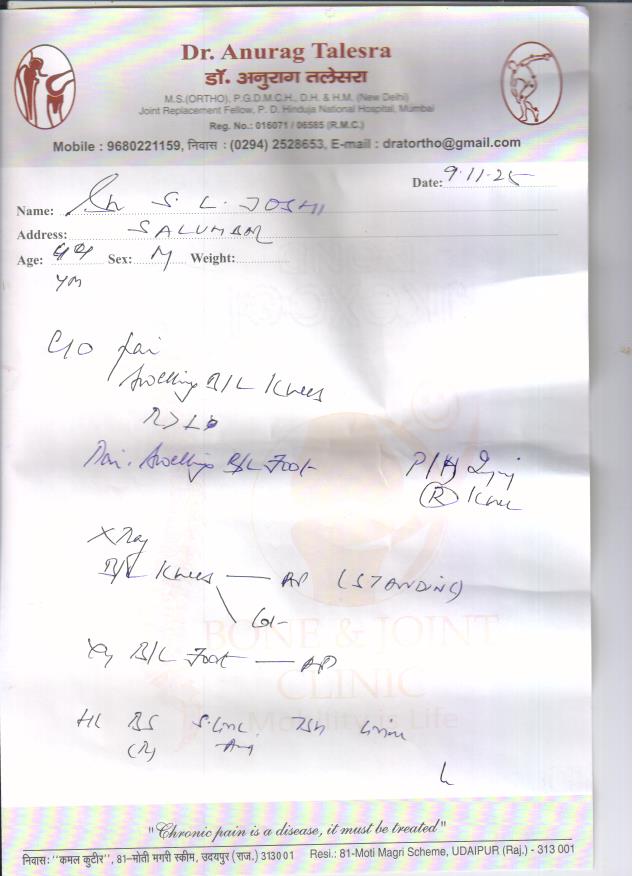 Dr. Anurag Talesra
डॉ. अनुराग तलेसरा
M.S.(ORTHO), P.G.D.M.C.H., D.H. & H.M. (New Delhi)
Joint Replacement Fellow, P. D. Hinduja National Hospital, Mumbai
Reg. No.: 016071 / 06585 (R.M.C.)
Mobile : 9680221159, निवास : (0294) 2528653, E-mail : dratortho@gmail.com
Date: 9.11.25
Name: S. L. JOSHI
Address: SALUMBAR
Age: Sex: M Weight:
C/O Pain
Swelling B/L Knees
R>L
Pain. Swelling B/L Foot
P/H Inj
(R) Knee
X Ray
B/L Knees — AP (STANDING)
Lat
Xry B/L Foot — AP
BONE & JOINT
CLINIC
Mobility is Life
BS
(R)
"Chronic pain is a disease, it must be treated"
निवास: "कमल कुटीर", 81-मोती मगरी स्कीम, उदयपुर (राज.) 313001 Resi.: 81-Moti Magri Scheme, UDAIPUR (Raj.) - 313 001